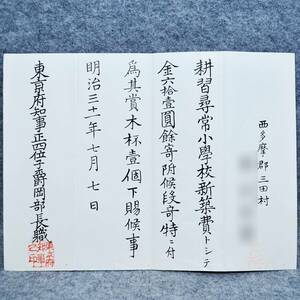 西多摩郡三田村
耕習尋常小學校新築費トシテ
金六拾壹圓餘寄附候段奇特ニ付
爲其賞木杯壹個下賜候事
明治三十一年七月七日
東京府知事正四位子爵岡部長職